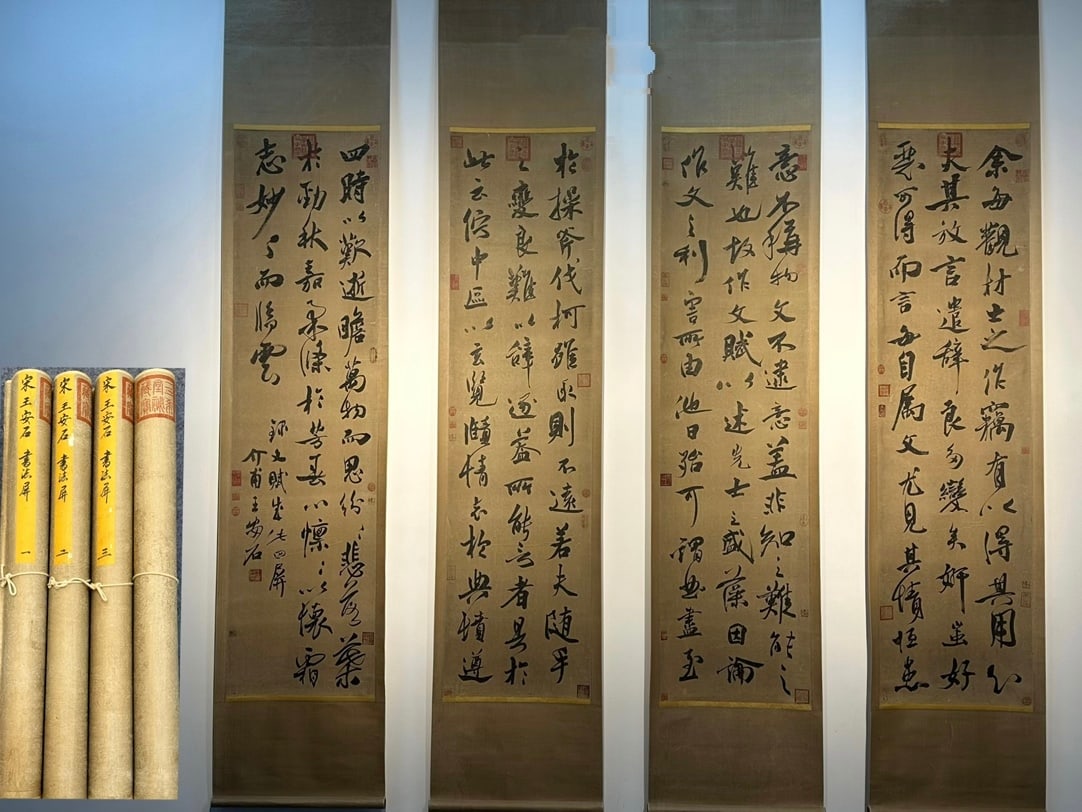 余每觀材士之作竊有以得其用心
夫其放言遣辭良多變矣妍蚩好
惡可得而言每自屬文尤見其情恒患
意不稱物文不逮意蓋非知之難能之
難也故作文賦以述先士之盛藻因論
作文之利害所由他日殆可謂曲盡至
於操斧伐柯雖取則不遠若夫隨手
之變良難以辭逐蓋所能言者具於
此云佇中區以玄覽頤情志於典墳遵
四時以歎逝瞻萬物而思紛〻悲落葉
於勁秋嘉柔條於芳春心懍〻以懷霜
志妙〻而臨雲
錄文賦成此四屏
介甫王安石
宋 王安石 書法屏 一
宋 王安石 書法屏 二
宋 王安石 書法屏 三